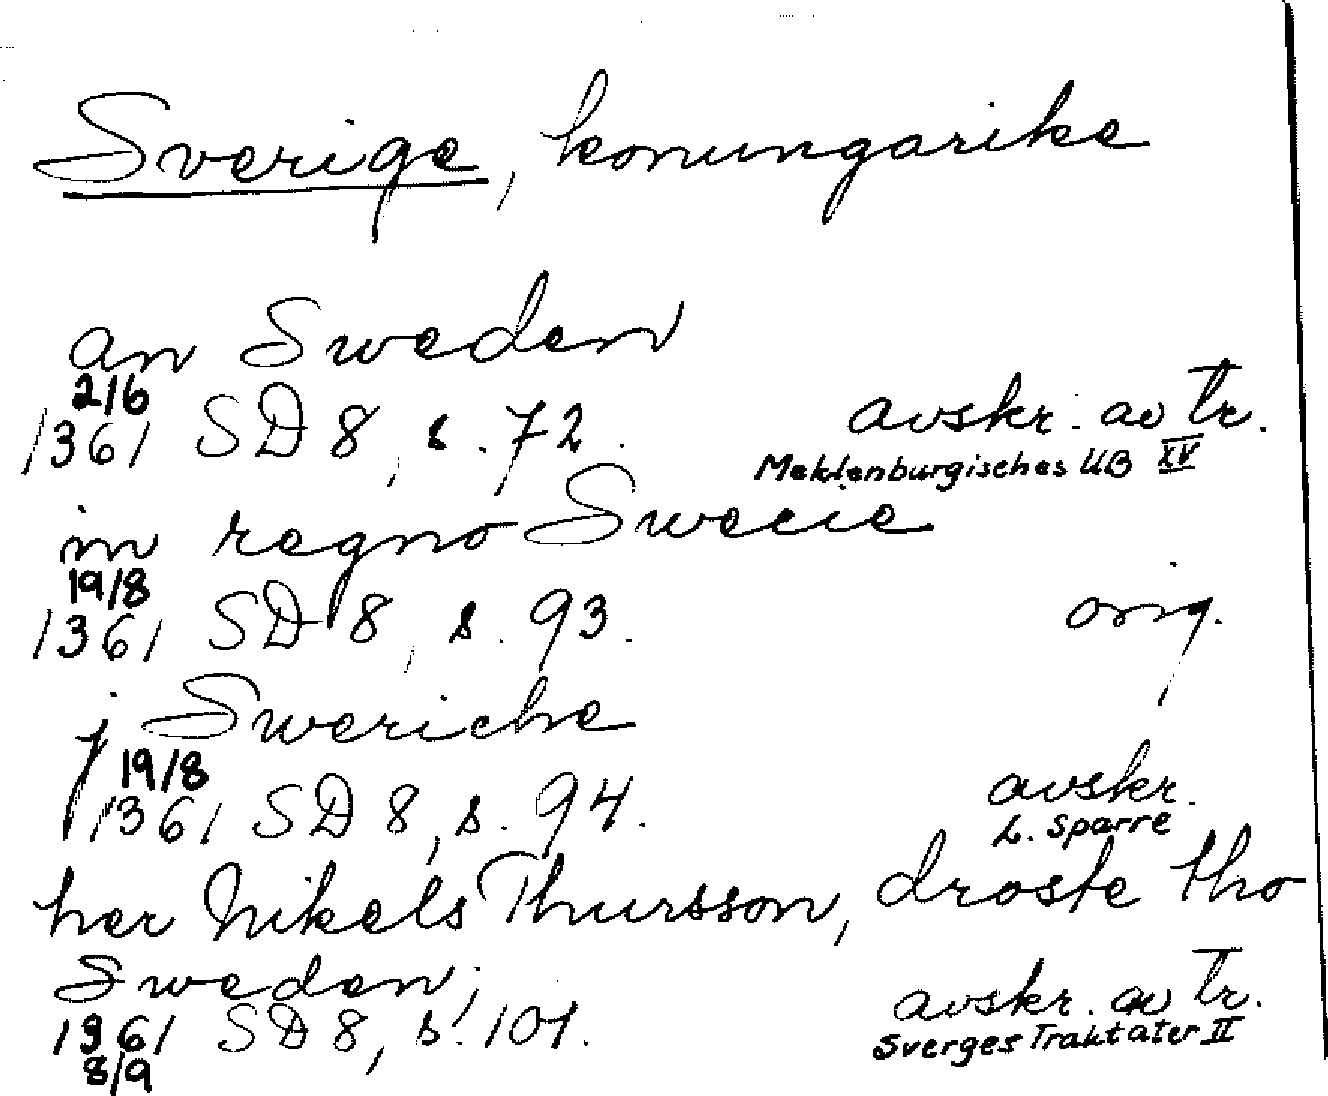 Sverige, konungarike
an Sweden
2/6
1361 SD 8, s. 72. avskr. av Tr.
Meklenburgisches UB XV
in regno Swecie
19/8
1361 SD 8, s. 93. orig.
j Swericke
19/8
1361 SD 8, s. 94. avskr.
L. Sparre
her Nikels Thursson, droste tho
Sweden;
1361 SD 8, s. 101. avskr. av Tr.
8/9 Sverges Traktater II